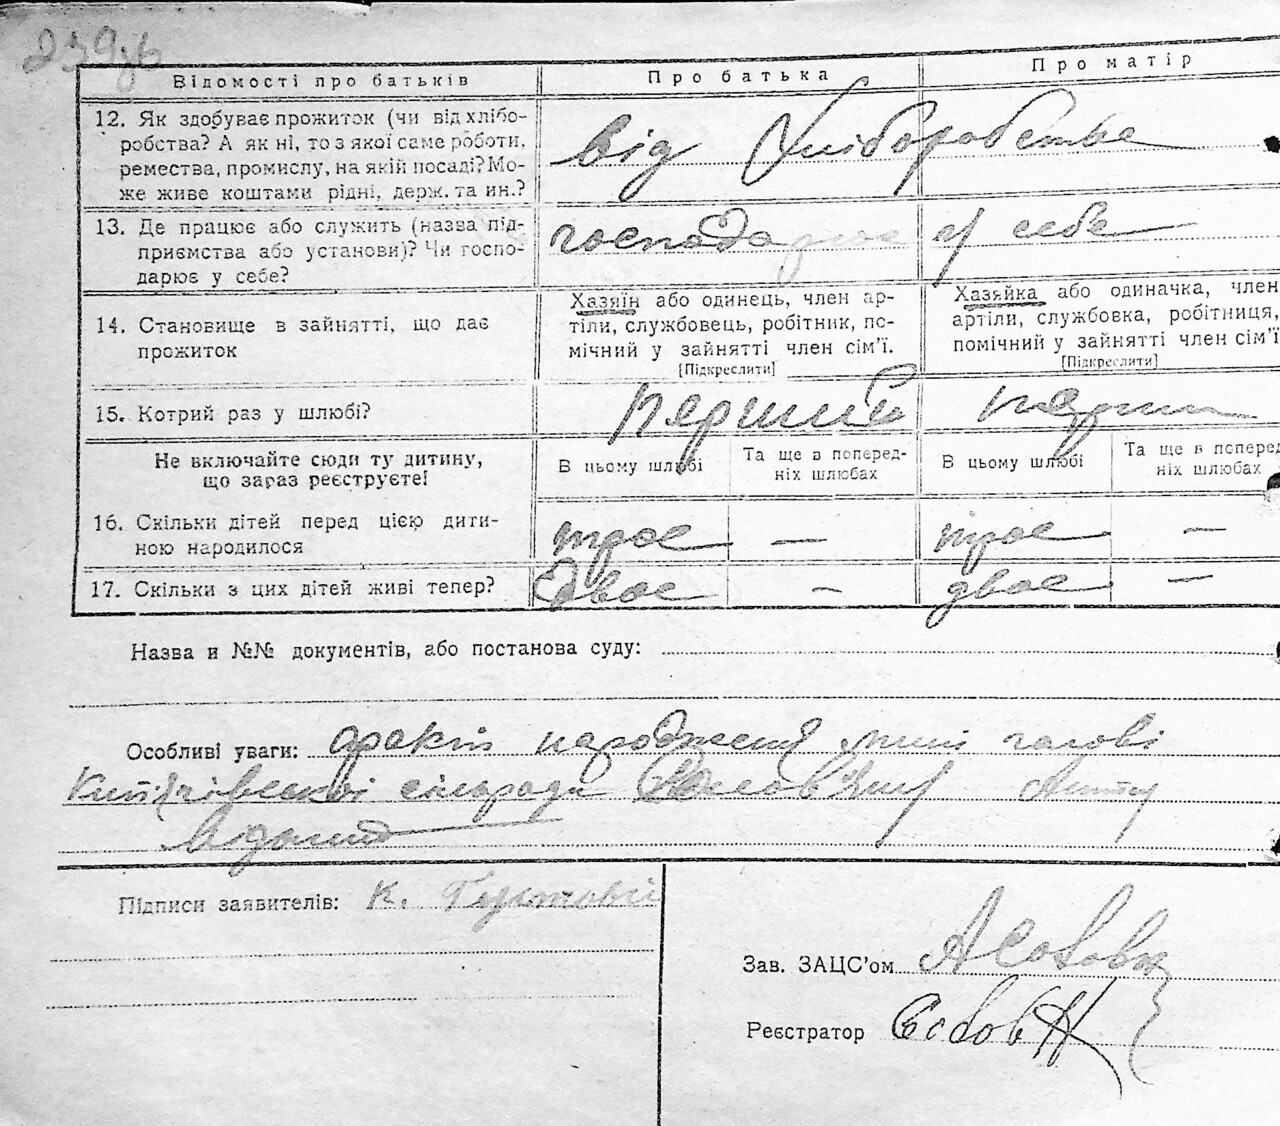 239зв
Відомості про батьків Про батька Про матір
12. Як здобуває прожиток (чи від хлібо-
робства? А як ні, то з якої саме роботи,
ремества, промислу, на якій посаді? Мо-
же живе коштами рідні, держ. та ин.?
від Хліборобства
13. Де працює або служить (назва під-
приємства або установи)? Чи госпо-
дарює у себе?
господарює у себе
14. Становище в зайнятті, що дає
прожиток
Хазяїн або одинець, член ар-
тіли, службовець, робітник, по-
мічний у зайнятті член сім'ї.
[Підкреслити]
Хазяйка або одиначка, член
артіли, службовка, робітниця,
помічний у зайнятті член сім'ї
[Підкреслити]
15. Котрий раз у шлюбі? перший перши
Не включайте сюди ту дитину,
що зараз реєструєте!
В цьому шлюбі
Та ще в поперед-
ніх шлюбах
В цьому шлюбі
Та ще в поперед
ніх шлюбах
16. Скільки дітей перед цією дити-
ною народилося
троє — троє —
17. Скільки з цих дітей живі тепер? двоє - двоє —
Назва и №№ документів, або постанова суду:
Особливі уваги: факт народження мені голові
сільради
Підписи заявителів: К.
Зав. ЗАЦС'ом
Реєстратор